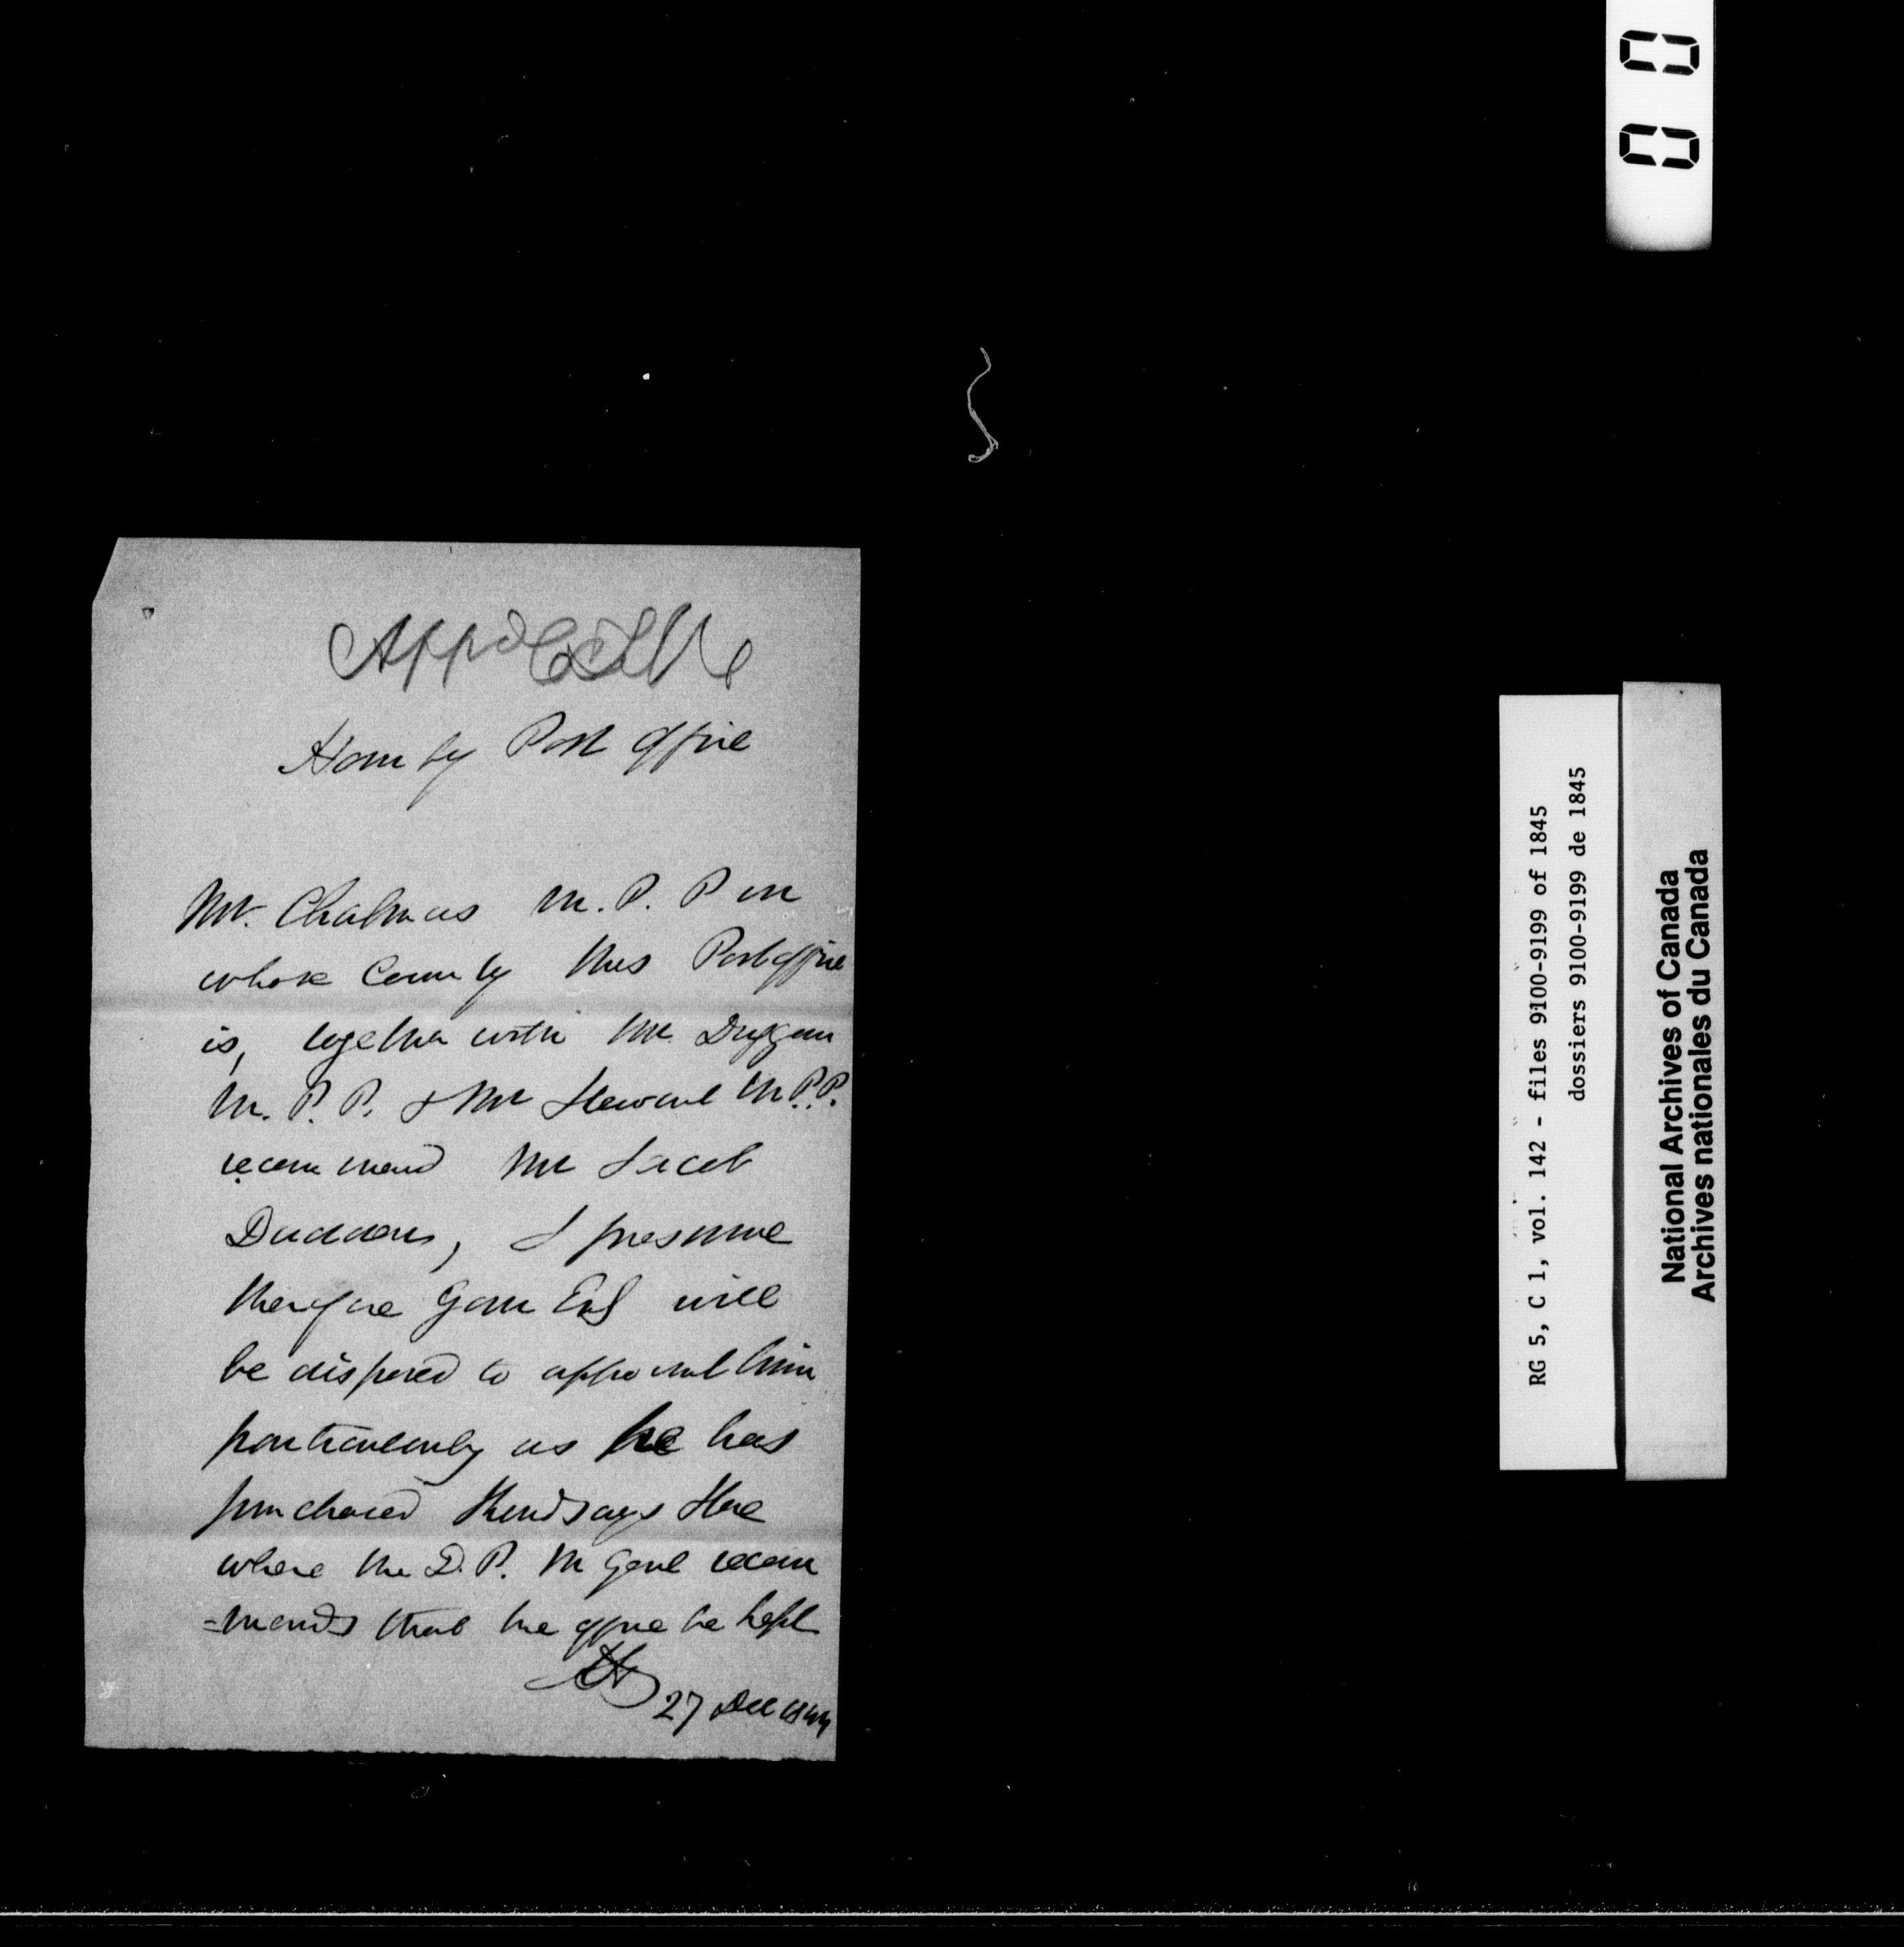 Appd
Hornby Post Office
Mr. Chalmers M. P. P in
whose County this Post office
is, together with Mr. Duggan
M. P. P. & Mr Stewart M.P.P.
recommend Mr Jacob
I presume
therefore Your Ex will
be disposed to appoint him
particularly as he has
purchased Store
where the D. P. M Genl recom
=mends that the office be kept
27 Dec 1844
RG 5, C 1, vol. 142 - files 9100-9199 of 1845
dossiers 9100-9199 de 1845
National Archives of Canada
Archives nationales du Canada